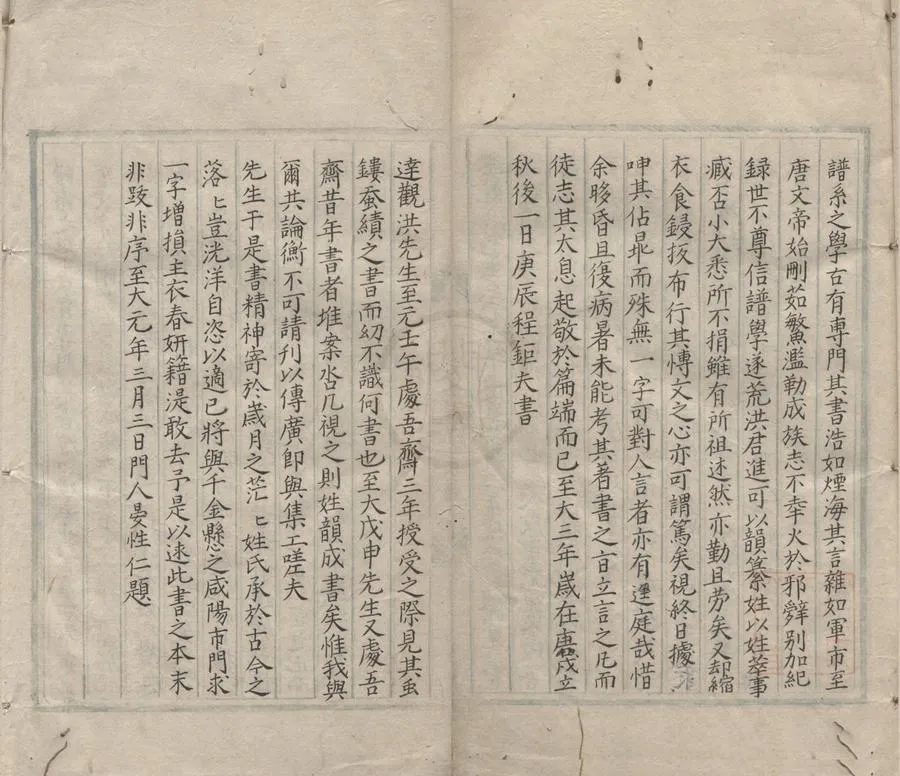 譜系之學古有專門其書浩如煙海其言雜如軍市至
唐文帝始刪茹繁濫勒成族志不幸火於邪辟別加紀
録世不尊信譜學遂荒洪君進可以韻纂姓以姓萃事
臧否小大悉所不捐雖有所祖述然亦勤且劳矣又却縮
衣食鋟板布行其愽文之心亦可謂篤矣視終日據
呻其佔畢而殊無一字可對人言者亦有逕庭哉惜
余眵昏且復病暑未能考其著書之旨立言之凡而
徒志其太息起敬於篇端而已至大三年嵗在庚戌立
秋後一日庚辰程鉅夫書
達觀洪先生至元壬午處吾齋三年授受之際見其䖝
鏤蚕績之書而㓜不識何書也至大戊申先生又處吾
齋昔年書者堆案㳫几視之則姓韻成書矣惟我與
爾共論衡不可請刋以傳廣即與集工嗟夫
先生于是書精神寄於嵗月之茫〻姓氏承於古今之
落〻豈洸洋自恣以適已將與千金懸之咸陽市門求
一字增損主衣春妍籍湜敢去予是以逺此書之本末
非跋非序至大元年三月三日門人晏性仁題